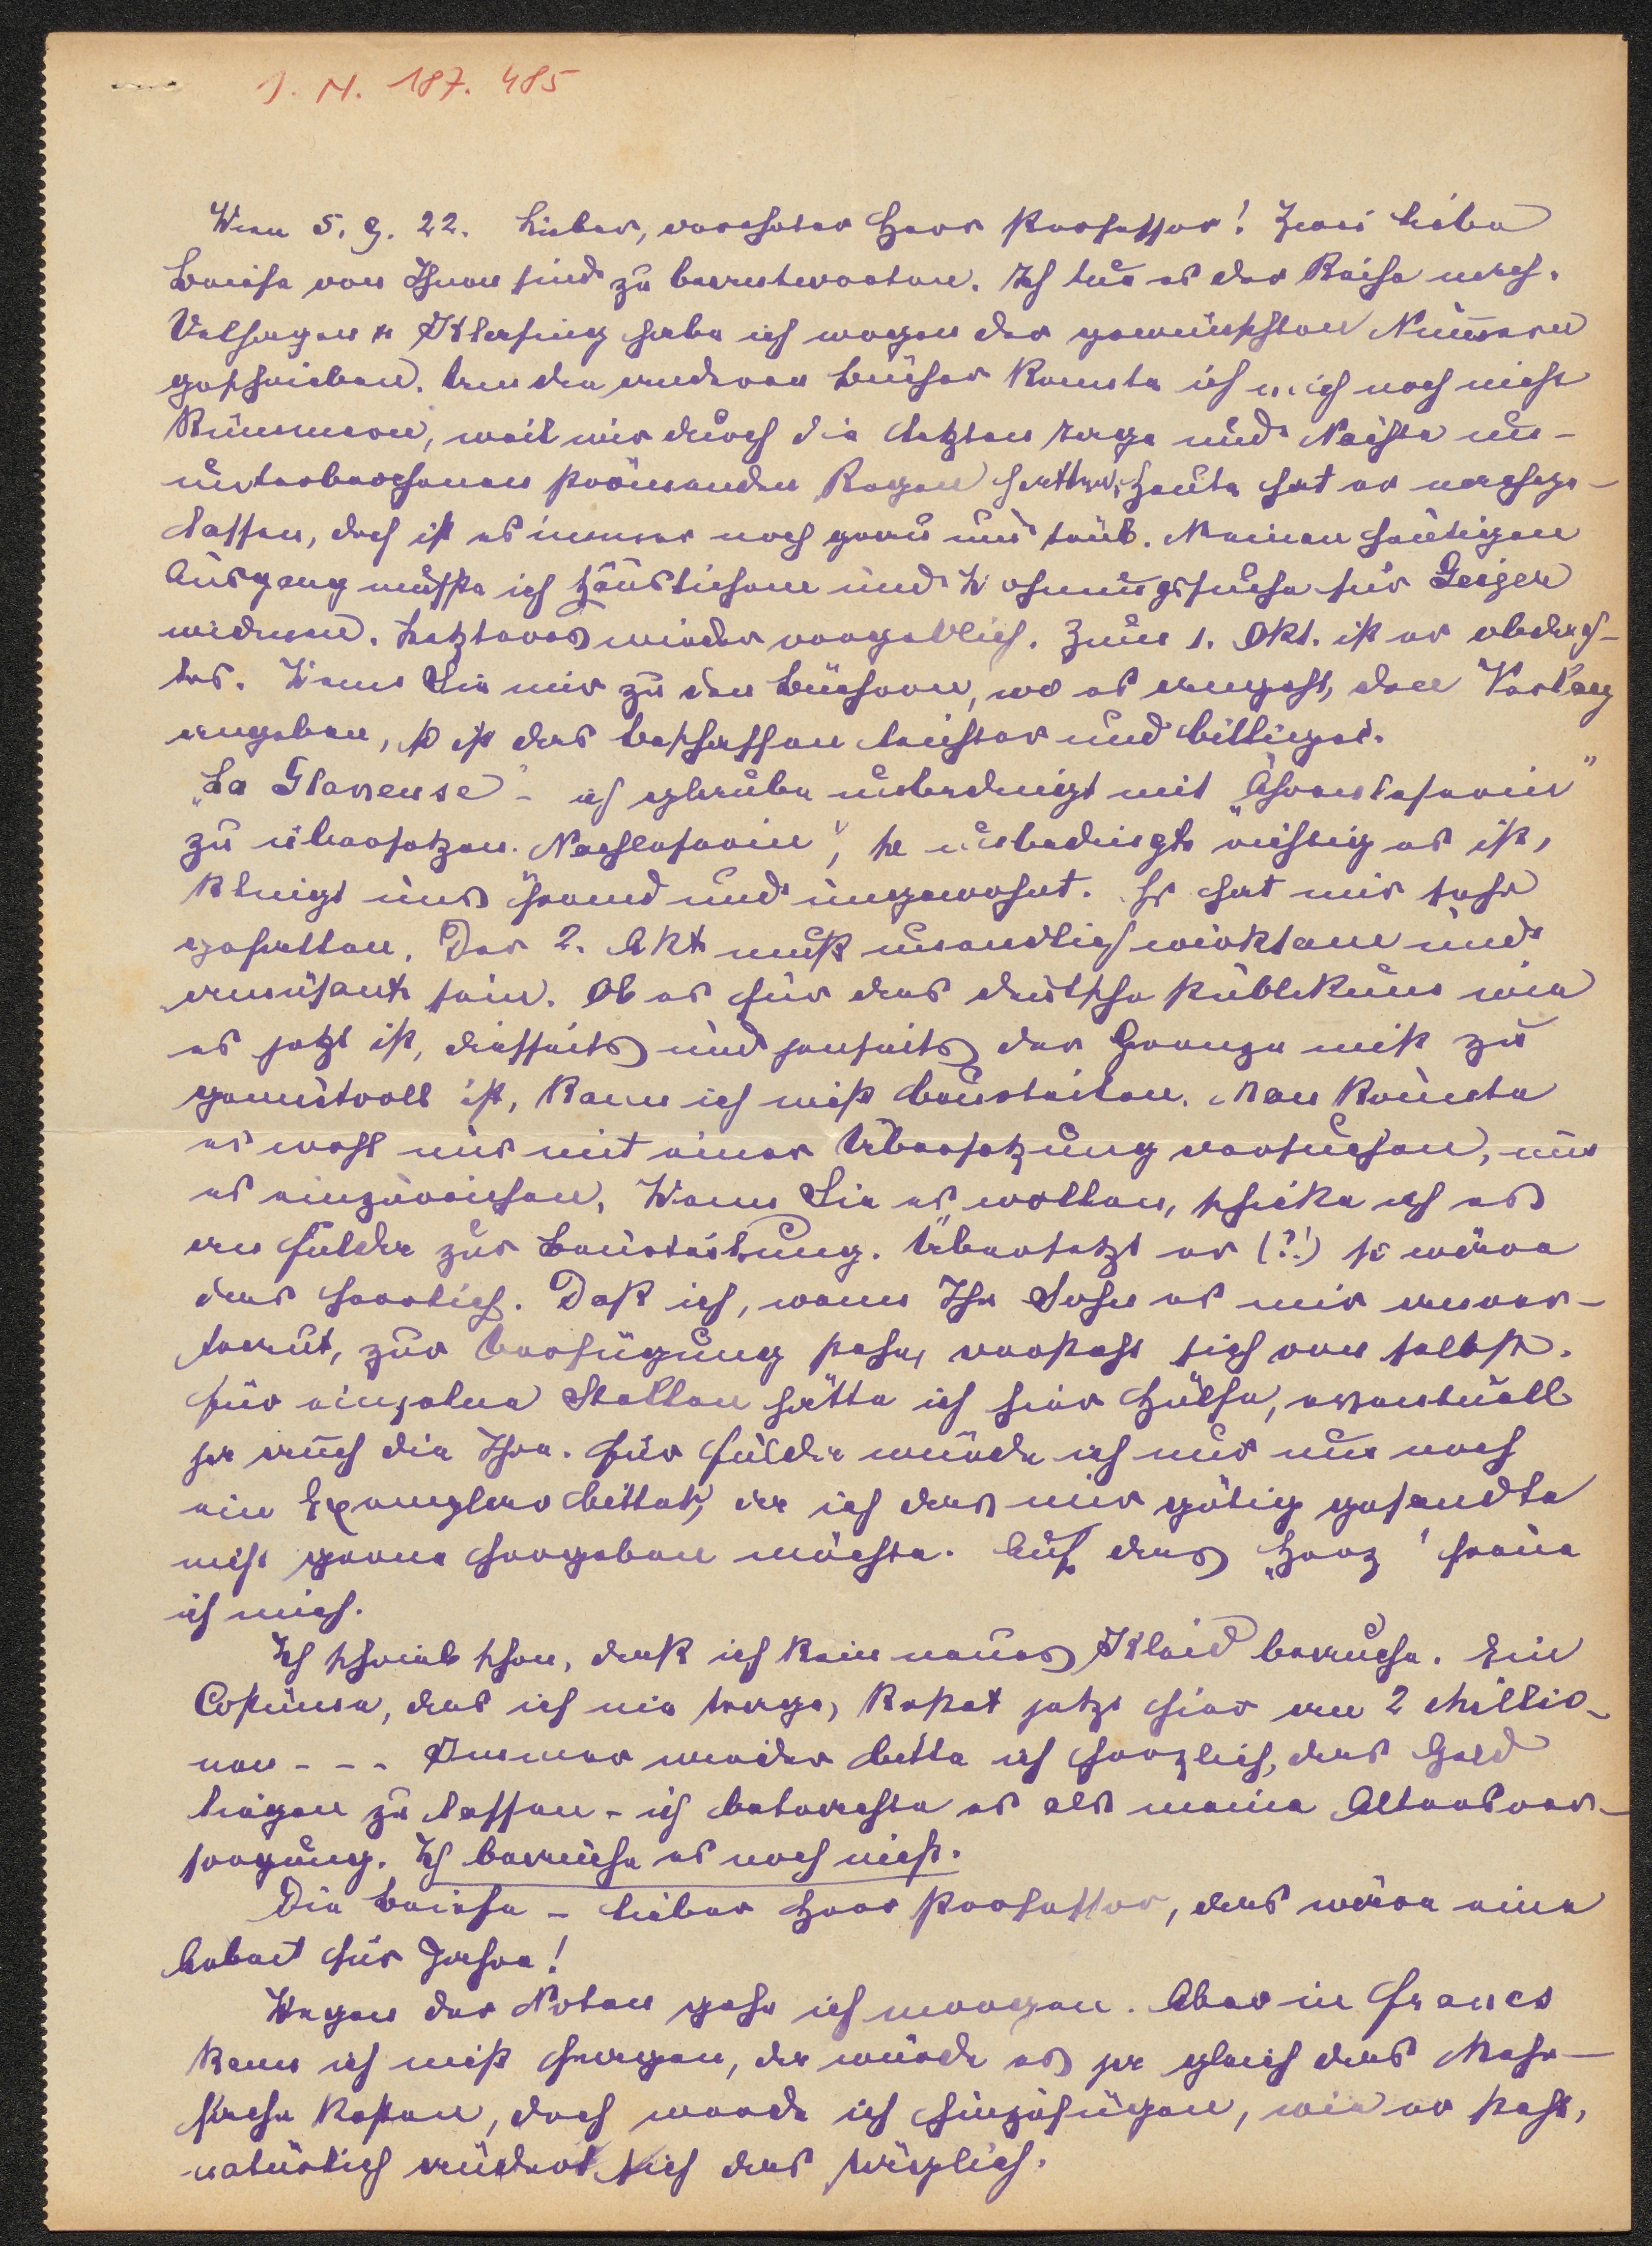 J. N. 187. 485
Wien 5. 9. 22. Lieber, verehrter Herr Professor! Zwei liebe
Briefe von Ihnen sind zu beantworten. Ich tue es der Reihe nach.
Velhagen u Klasing habe ich wegen der gewünschten Nummern
geschrieben. Um die anderen Bücher konnte ich mich noch nicht
kümmern, weil wir durch die letzten Tage und Nächte un-
unterbrochenen strömenden Regen hatten, heute hat er nachge-
lassen, doch ist es immer noch grau und trüb. Meinen heutigen
Ausgang mußte ich Häuslichem und Wohnungssuche für Geiger
widmen. Letzteres wieder vergeblich. Zum 1. Okt. ist er obdach-
los. Wenn Sie mir zu den Büchern, wo es angeht, den Verlag
angeben, so ist das Beschaffen leichter und billiger.
"La Glaneuse" - ich glaube unbedingt mit "Ährenleserin"
zu übersetzen. Nachleserin", so unbedingt richtig es ist,
klingt uns fremd und ungewohnt. Es hat mir sehr
gefallen. Der 2. Akt muß unendlich wirksam und
amüsant sein. Ob es für das deutsche Publikum wie
es jetzt ist, diesseits und jenseits der Grenze nicht zu
gemütvoll ist, kann ich nicht beurteilen. Man könnte
es wohl nur mit einer Übersetzung versuchen, um
es einzureichen. Wenn Sie es wollen, schicke ich es
an Fulda zur Beurteilung. Übersetzt er (?!) so wäre
das herrlich. Daß ich, wenn Ihr Sohn es mir anver-
traut, zur Verfügung stehe, versteht sich von selbst.
Für einzelne Stellen hätte ich hier Hülfe, eventuell
ja auch die Ihre. Für Fulda würde ich nur um noch
ein Exemplar bitten, da ich das mir gütig gesandte
nicht gerne hergeben möchte. Auf das "Herz" freue
ich mich.
Ich schrieb schon, daß ich kein neues Kleid brauche. Ein
Costume, das ich nie trage, kostet jetzt hier an 2 Millio-
nen - - - Immer wieder bitte ich herzlich, das Geld
liegen zu lassen - ich betrachte es als meine Altersver-
sorgung. Ich brauche es noch nicht.
Die Briefe - lieber Herr Professor, das wäre eine
Arbeit für Jahre!
Wegen der Noten gehe ich morgen. Aber in Francs
kann ich nicht fragen, da würde es ja gleich das Mehr-
fache kosten, doch werde ich hinzufügen, wie er steht,
natürlich ändert sich das täglich.